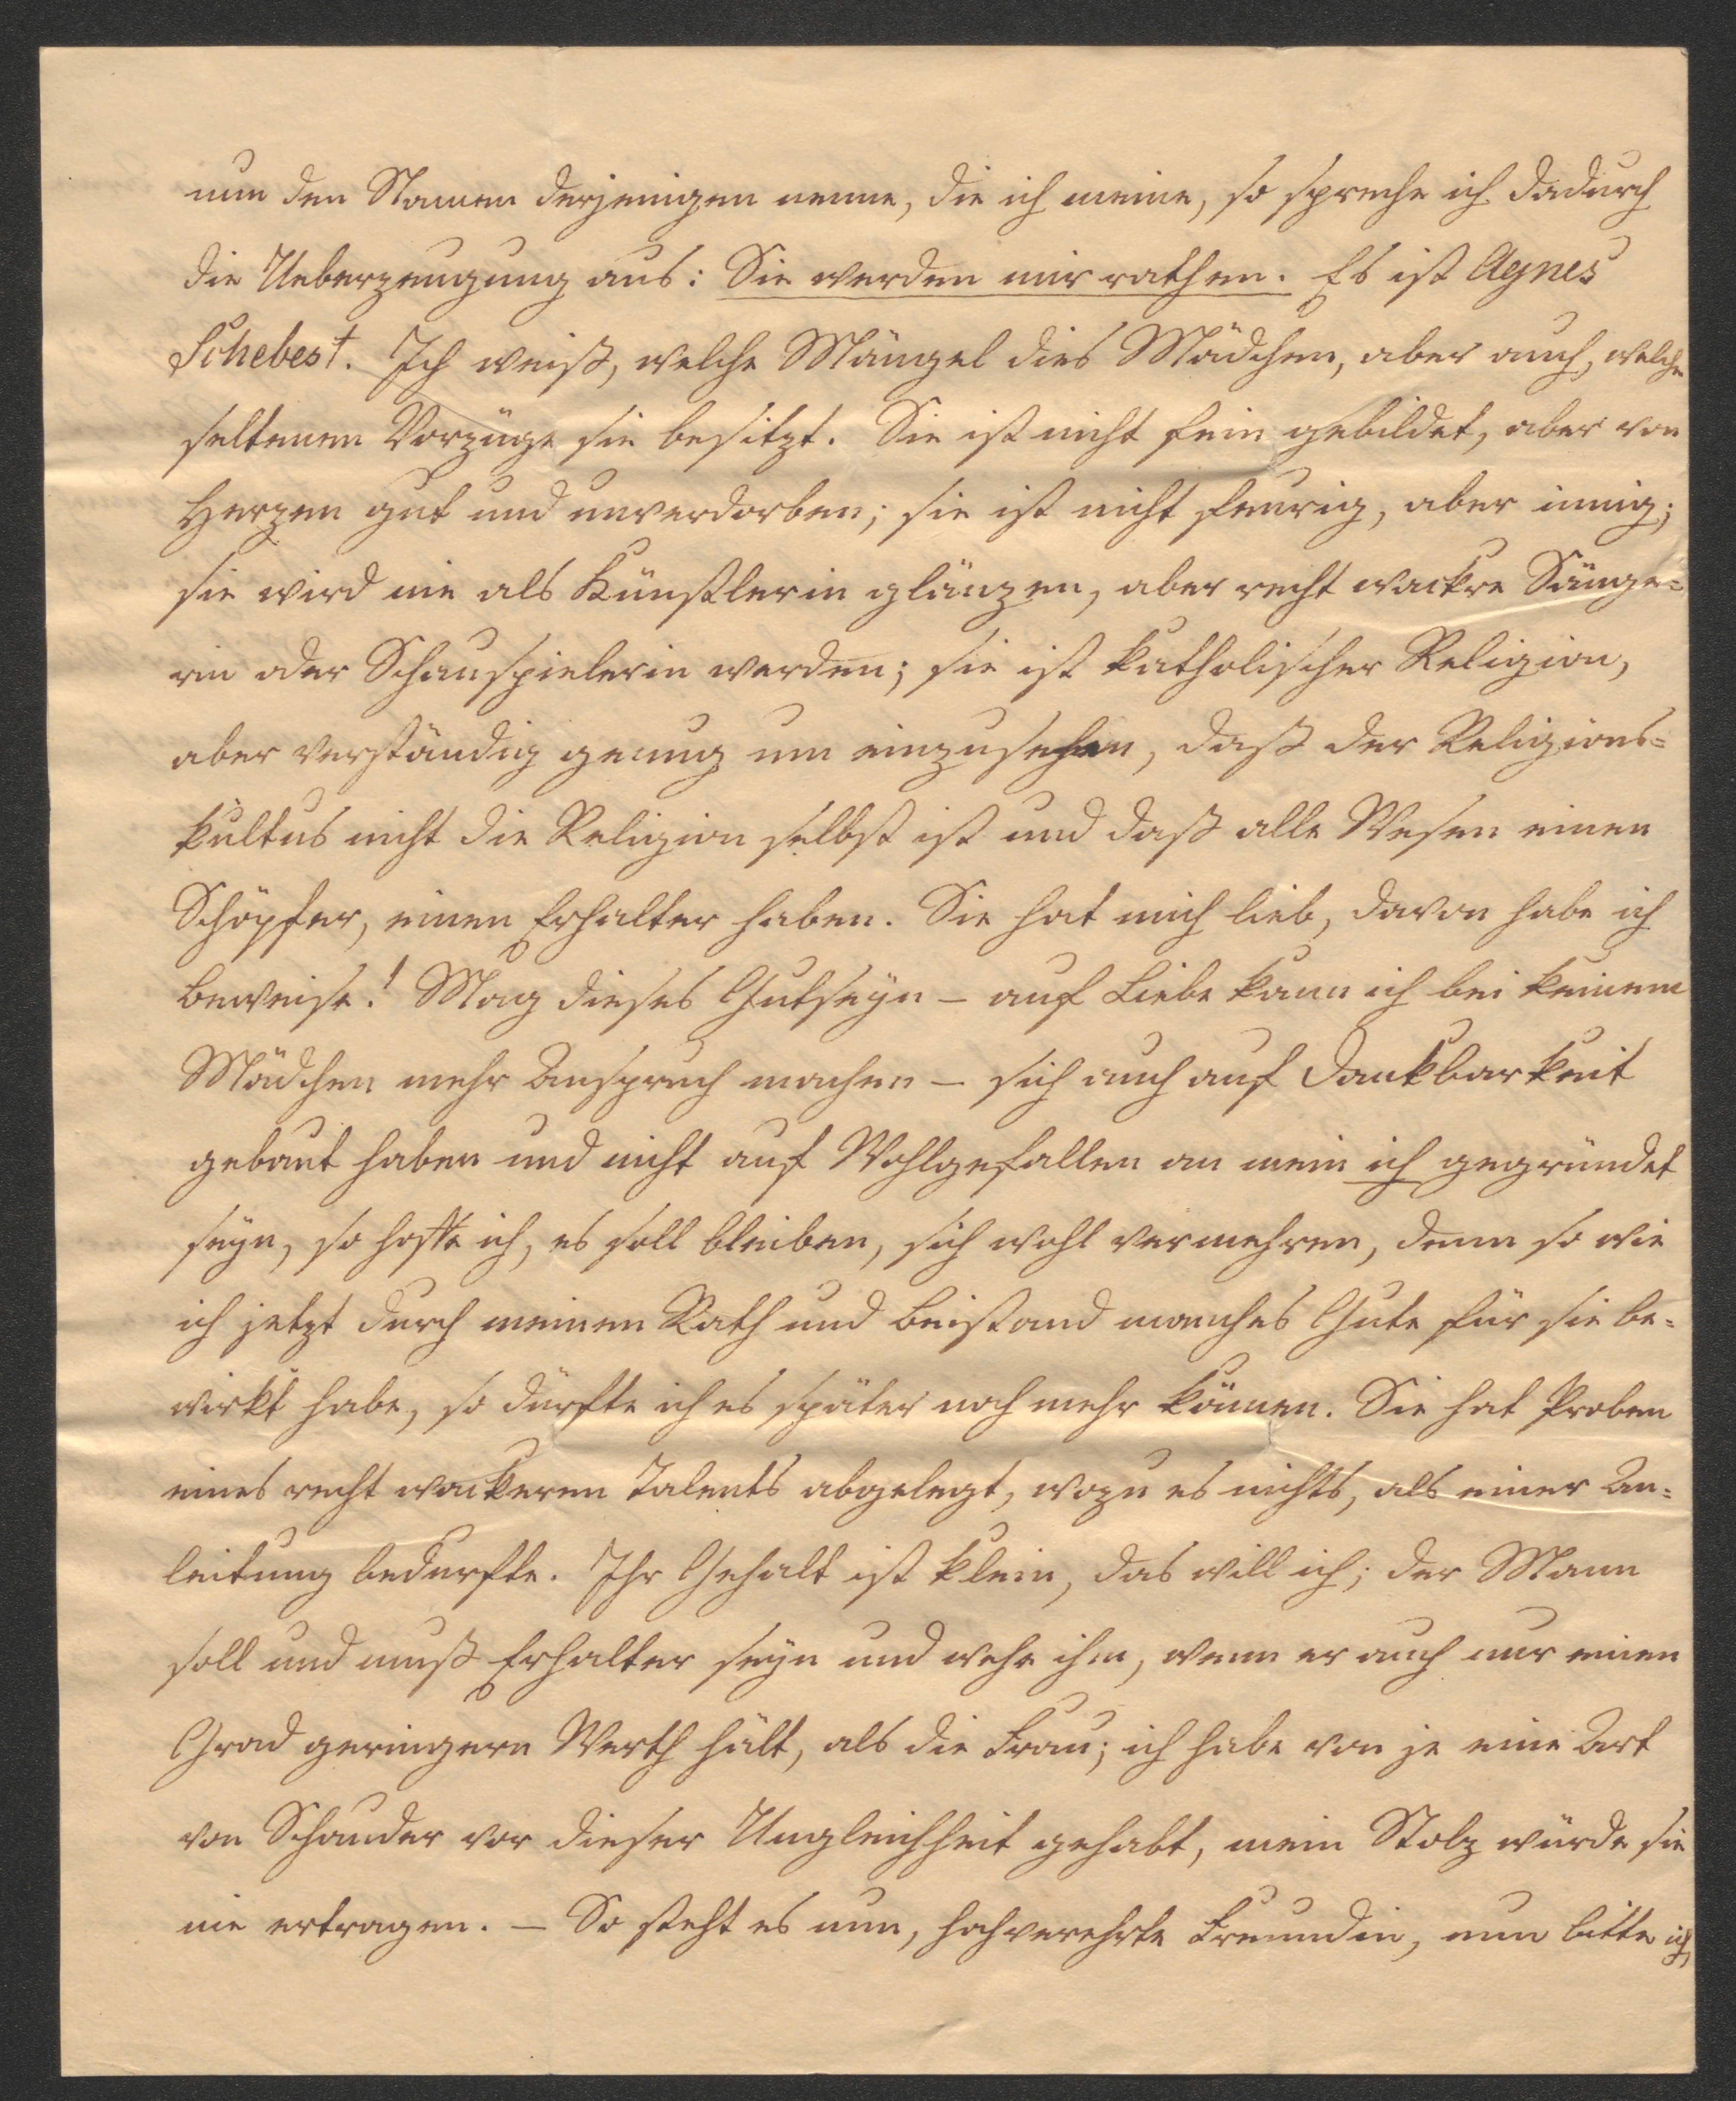 nun den Namen derjenigen nenne, die ich meine, so spreche ich dadurch
die Ueberzeugung aus: Sie werden mir rathen. Es ist Agnes
Schebest. Ich weiß, welche Mängel dies Mädchen, aber auch, welche
seltenen Vorzüge sie besitzt. Sie ist nicht fein gebildet, aber von
Herzen gut und unverdorben; sie ist nicht feurig, aber innig;
sie wird nie als Künstlerin glänzen, aber recht wackre Sänge-
rin oder Schauspielerin werden; sie ist katholischer Religion,
aber verständig genug um einzusehen, daß der Religions-
kultus nicht die Religion selbst ist und daß alle Wesen einen
Schöpfer, einen Erhalter haben. Sie hat mich lieb, davon habe ich
Beweise! Mag dieses Gutseyn – auf Liebe kann ich bei keinem
Mädchen mehr Anspruch machen – sich auch auf Dankbarkeit
gebaut haben und nicht auf Wohlgefallen an mein ich gegründet
seyn, so hoffe ich, es soll bleiben, sich wohl vermehren, denn so wie
ich jetzt durch meinen Rath und Beistand manches Gute für sie be-
wirkt habe, so dürfte ich es später noch mehr können. Sie hat Proben
eines recht wackeren Talents abgelegt, wozu es nichts, als einer An-
leitung bedurfte. Ihr Gehalt ist klein, das will ich; der Mann
soll und muß Erhalter seyn und wehe ihm, wenn er auch nur einen
Grad geringern Werth hält, als die Frau; ich habe von je eine Art
von Schauder vor dieser Ungleichheit gehabt, mein Stolz würde sie
nie ertragen. – So steht es nun, hochverehrte Freundin, nun bitte ich,